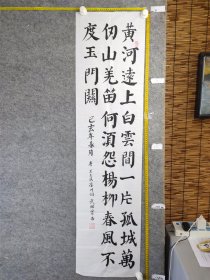 黄河遠上白雲間一片孤城萬
仞山羌笛何須怨楊柳春風不
度玉門關
己亥年春月